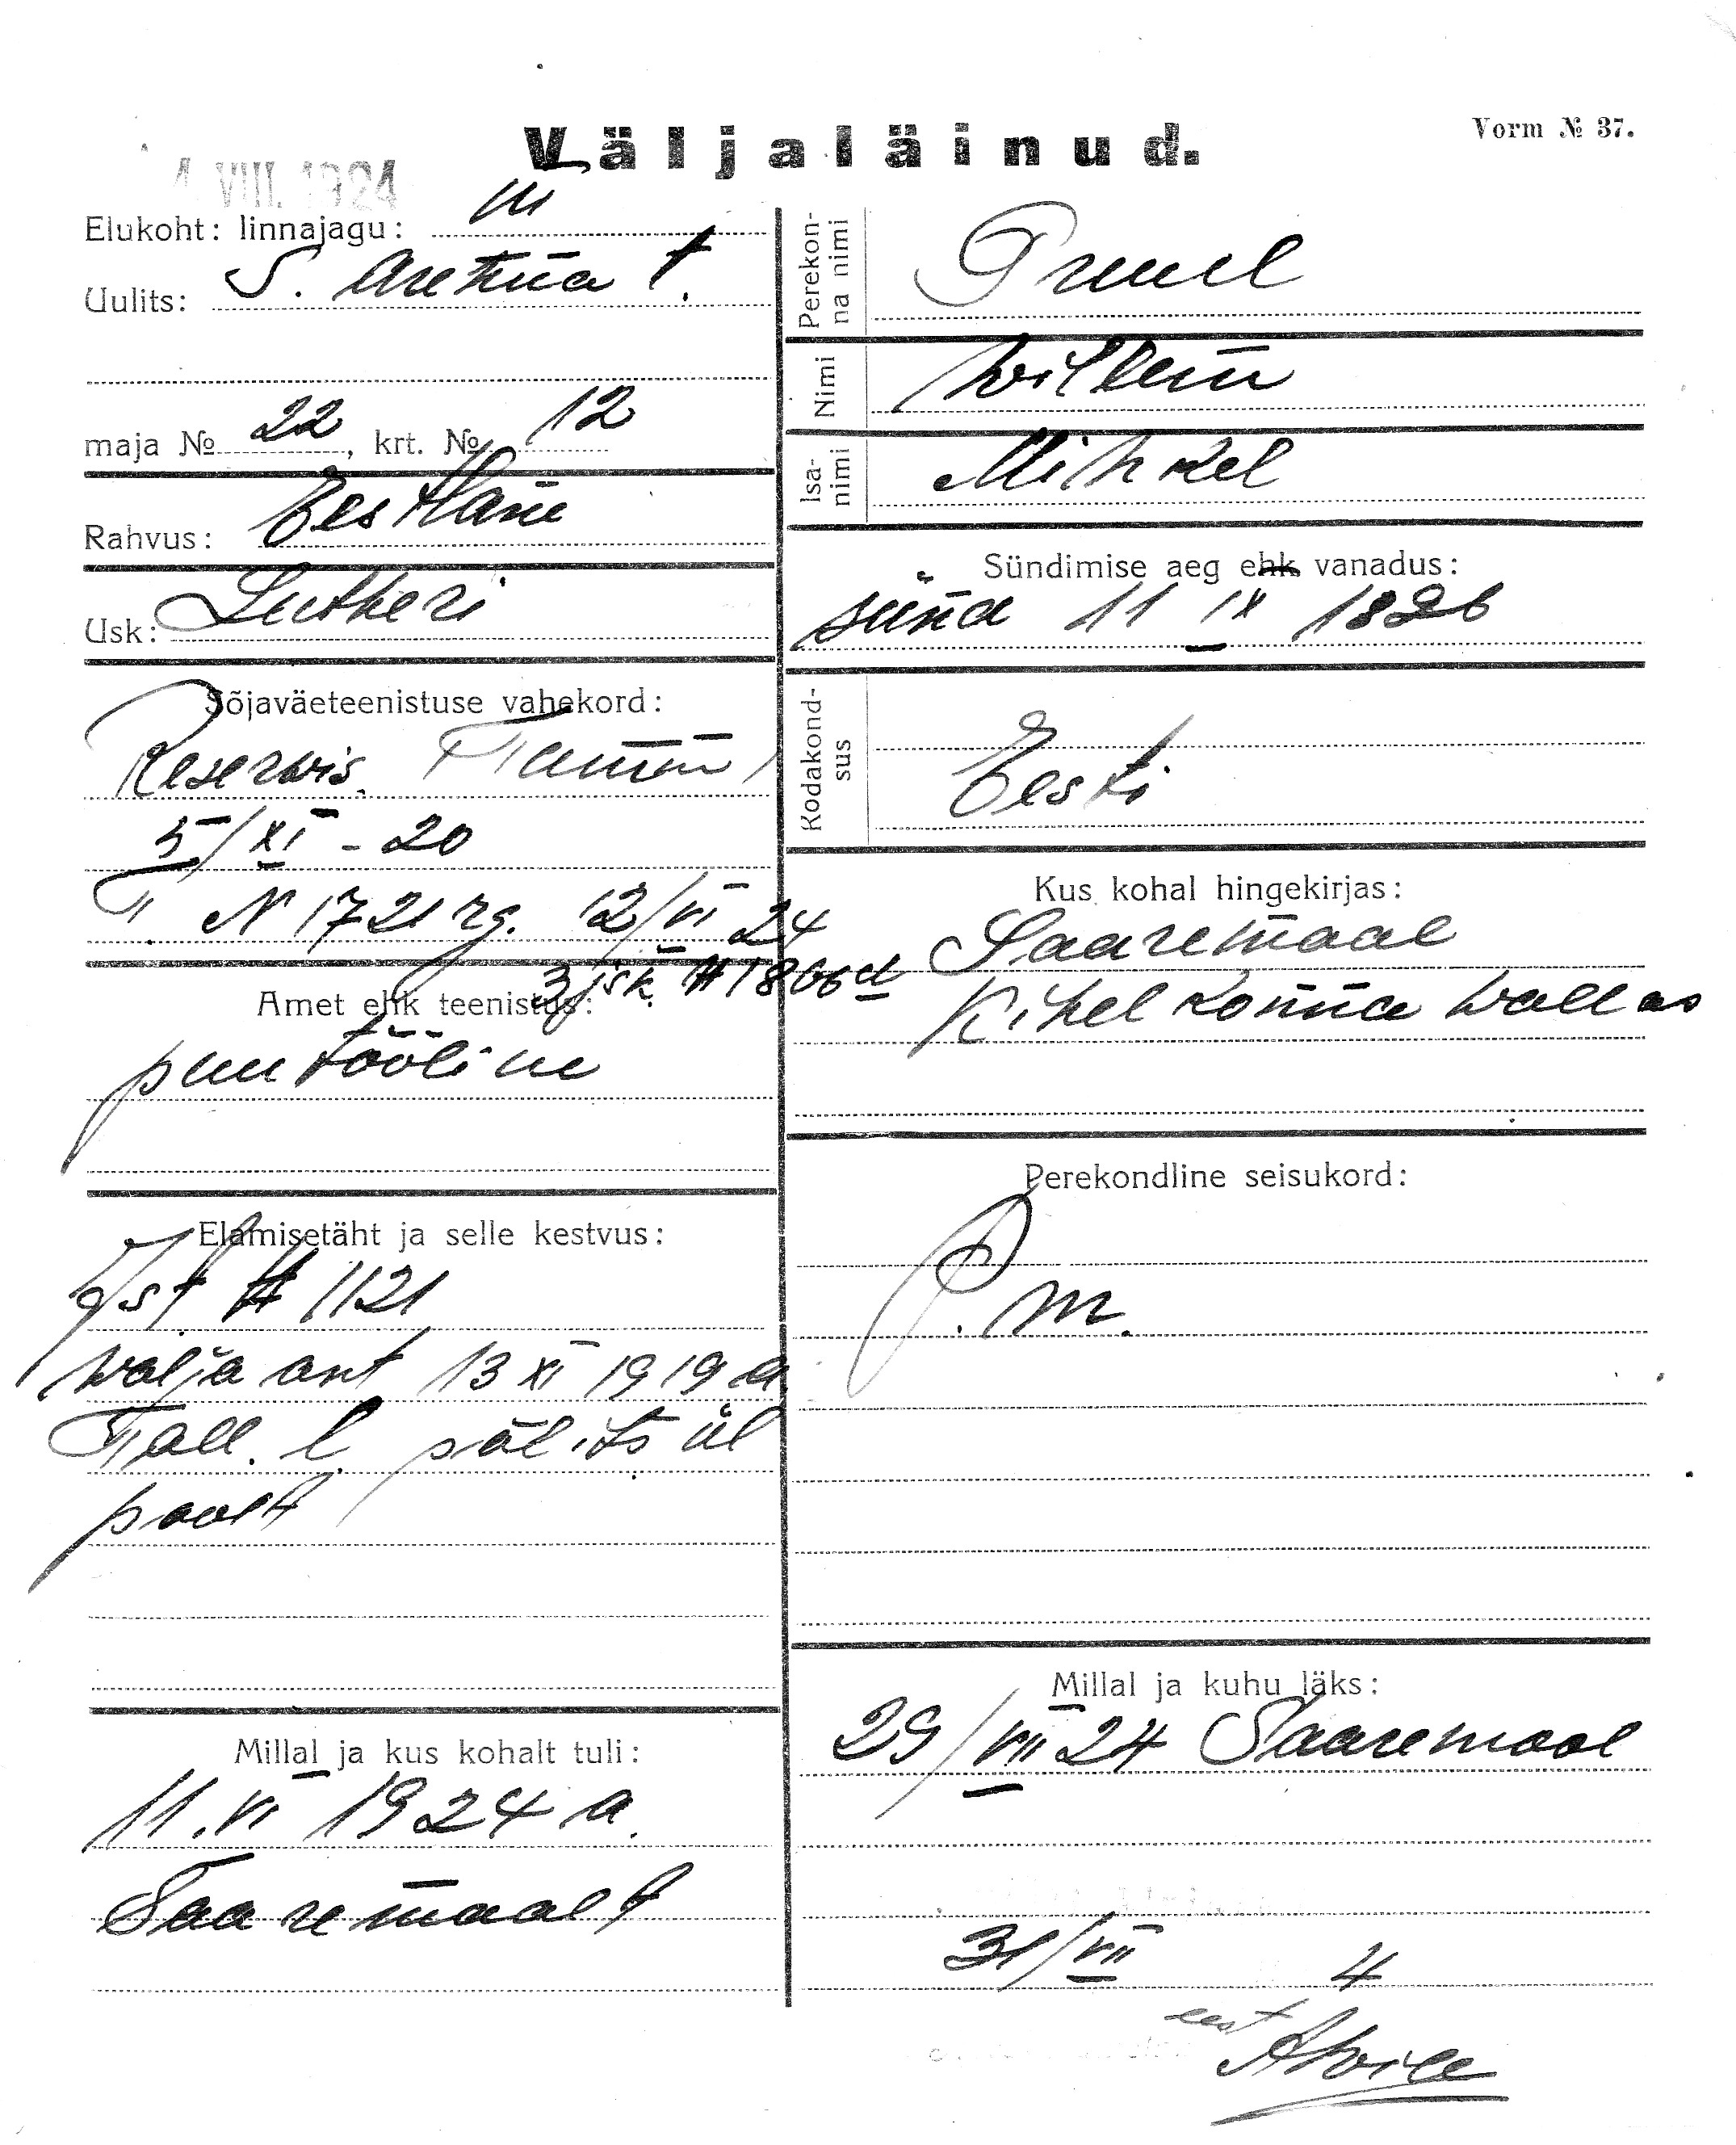 Vorm № 37.
Väljaläinud.
4 VIII. 1924
Elukoht: linnajagu: III
Uulits: S. t.
maja № 22, krt. № 12
Rahvus: Eestlane
Usk: Lutheri
Sõjaväeteenistuse vahekord:
Reserwis.
5/XI - 20
T. N 1721 rg. 12/VI 24
3 jsk. № 1866
Amet ehk teenistus:
puutööline
Elamisetäht ja selle kestvus:
№ 1121
walja ant 13 XI 1919 a
Tall. l. polits ül
poolt
Millal ja kus kohalt tuli:
11. VI 1924 a.
Saaremaalt
Perekonna nimi Pruul
Nimi Willem
Isanimi Mihkel
Sündimise aeg ehk vanadus:
sünd 11 IX 1896
Kodakondsus Eesti
Kus kohal hingekirjas:
Saaremaal
Kihelkonna wallas
Perekondline seisukord:
P. m.
Millal ja kuhu läks:
29/VII 24 Saaremaale
31/VII 4
eest